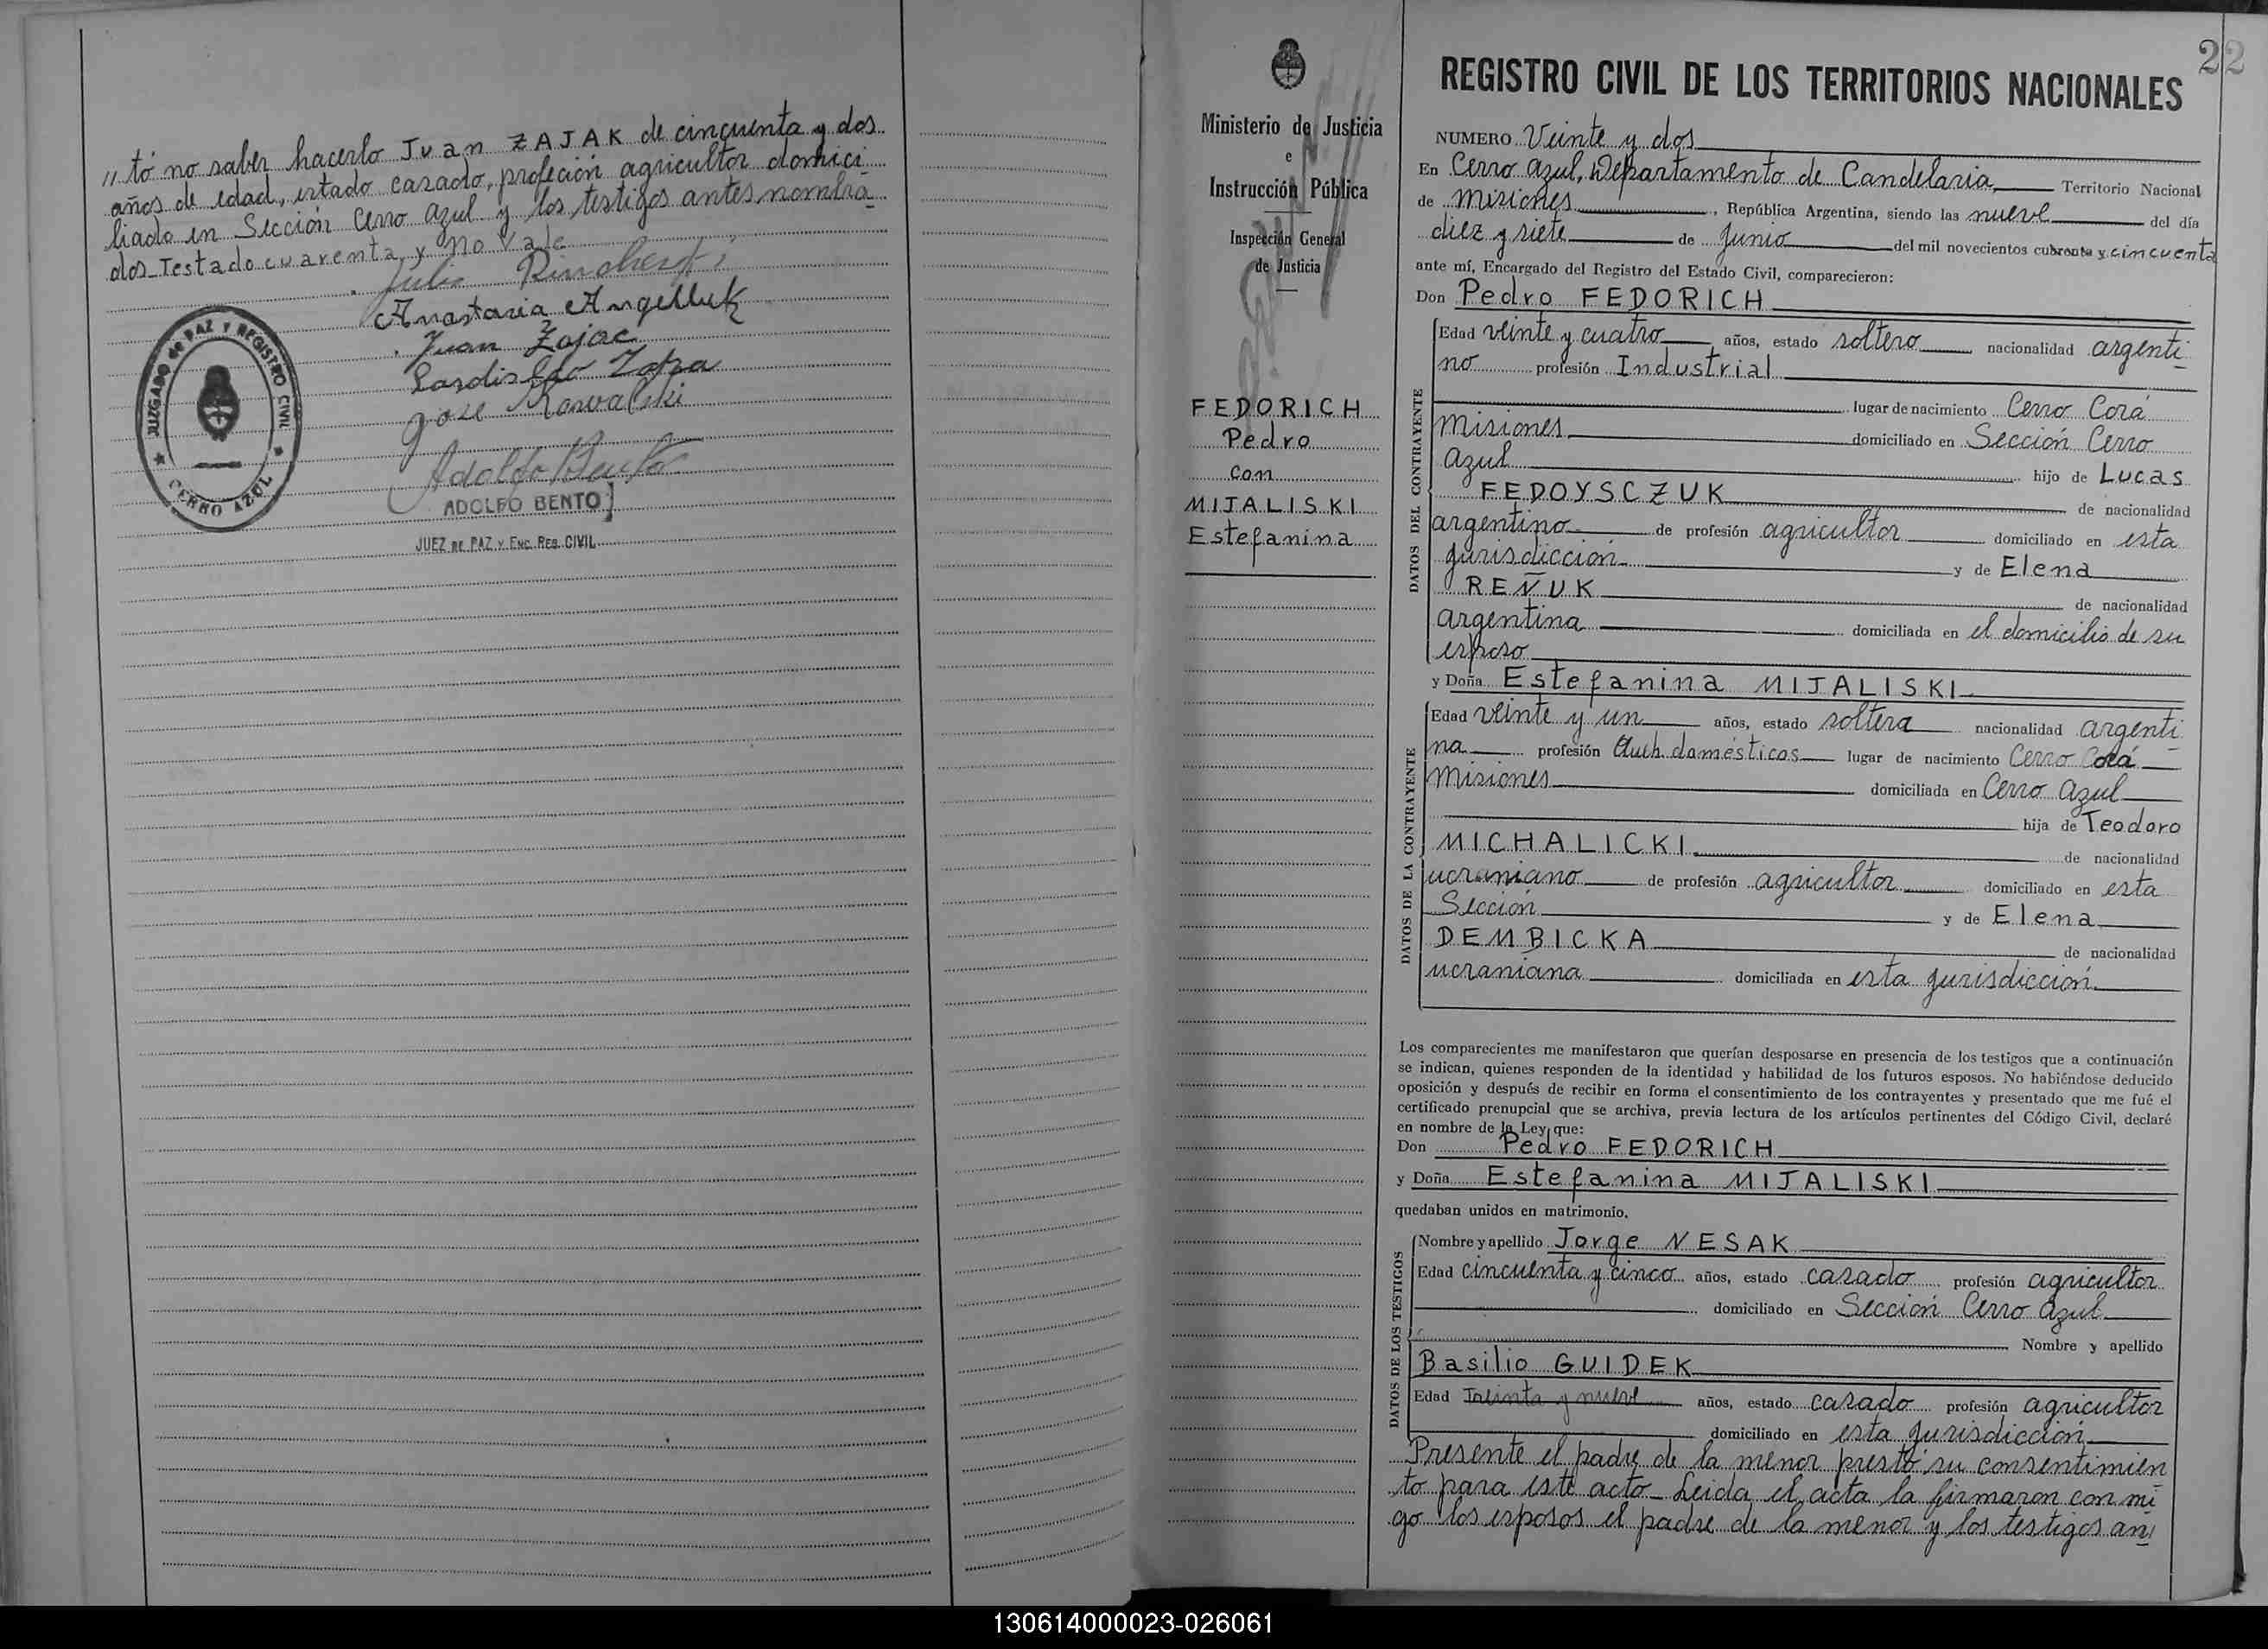 „tó no saber hacerlo Juan ZAJAK de cincuenta y dos
años de edad, estado casado, profeción agricultor domici
liado en Sección Cerro Azul y los testigos antes nombra
dos_Testado cuarenta y No Vale
Anastasia Angelluk
Juan Zajac
Ladislao Zopa
José Kowalski
Adolfo Bento
ADOLFO BENTO
JUEZ DE PAZ Y ENC. REG. CIVIL
JUZGADO de PAZ Y REGISTRO CIVIL
★ CERRO AZUL ★
Ministerio de Justicia
e
Instrucción Pública
Inspección General
de Justicia
FEDORICH
Pedro
con
MIJALISKI
Estefanina
22
REGISTRO CIVIL DE LOS TERRITORIOS NACIONALES
NUMERO Veinte y dos
En Cerro Azul, Departamento de Candelaria Territorio Nacional
de Misiones, República Argentina, siendo las nueve del día
diez y siete de Junio del mil novecientos cuarenta y cincuenta
ante mí, Encargado del Registro del Estado Civil, comparecieron:
Don Pedro FEDORICH
DATOS DEL CONTRAYENTE
Edad veinte y cuatro años, estado soltero nacionalidad argenti
no profesión Industrial
lugar de nacimiento Cerro Corá
Misiones domiciliado en Sección Cerro
Azul hijo de Lucas
FEDOYSCZUK de nacionalidad
argentino de profesión agricultor domiciliado en esta
jurisdicción y de Elena
REÑUK de nacionalidad
argentina domiciliada en el domicilio de su
esposo
y Doña Estefanina MIJALISKI
DATOS DE LA CONTRAYENTE
Edad veinte y un años, estado soltera nacionalidad argenti
na profesión Queh. domésticos lugar de nacimiento Cerro Corá
Misiones domiciliada en Cerro Azul
hija de Teodoro
MICHALICKI de nacionalidad
ucraniano de profesión agricultor domiciliado en esta
Sección y de Elena
DEMBICKA de nacionalidad
ucraniana domiciliada en esta jurisdicción
Los comparecientes me manifestaron que querían desposarse en presencia de los testigos que a continuación
se indican, quienes responden de la identidad y habilidad de los futuros esposos. No habiéndose deducido
oposición y después de recibir en forma el consentimiento de los contrayentes y presentado que me fué el
certificado prenupcial que se archiva, previa lectura de los artículos pertinentes del Código Civil, declaré
en nombre de la Ley que:
Don Pedro FEDORICH
y Doña Estefanina MIJALISKI
quedaban unidos en matrimonio.
DATOS DE LOS TESTIGOS
Nombre y apellido Jorge NESAK
Edad cincuenta y cinco años, estado casado profesión agricultor
domiciliado en Sección Cerro Azul
Nombre y apellido
Basilio GUIDEK
Edad Treinta y nueve años, estado casado profesión agricultor
domiciliado en esta jurisdicción
Presente el padre de la menor prestó su consentimien
to para este acto_Leida el acta la firmaron con mi
go los esposos el padre de la menor y los testigos an
130614000023-026061